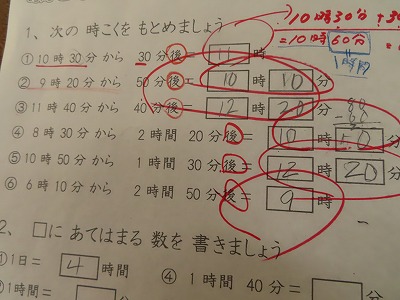 10時30分+30
=10時60分
1時間
1、次の 時こくを もとめましょう
① 10時30分から 30分後= 11 時
② 9時20分から 50分後= 10 時 10 分
③ 11時40分から 40分後= 12 時 20 分
④ 8時30分から 2時間 20分後= 10 時 50 分
⑤ 10時50分から 1時間 30分後= 12 時 20 分
⑥ 6時10分から 2時間 50分後= 9 時
2、□に あてはまる 数を 書きましょう
① 1日= 4 時間
④ 1時間 40分= 分
② 1時間=